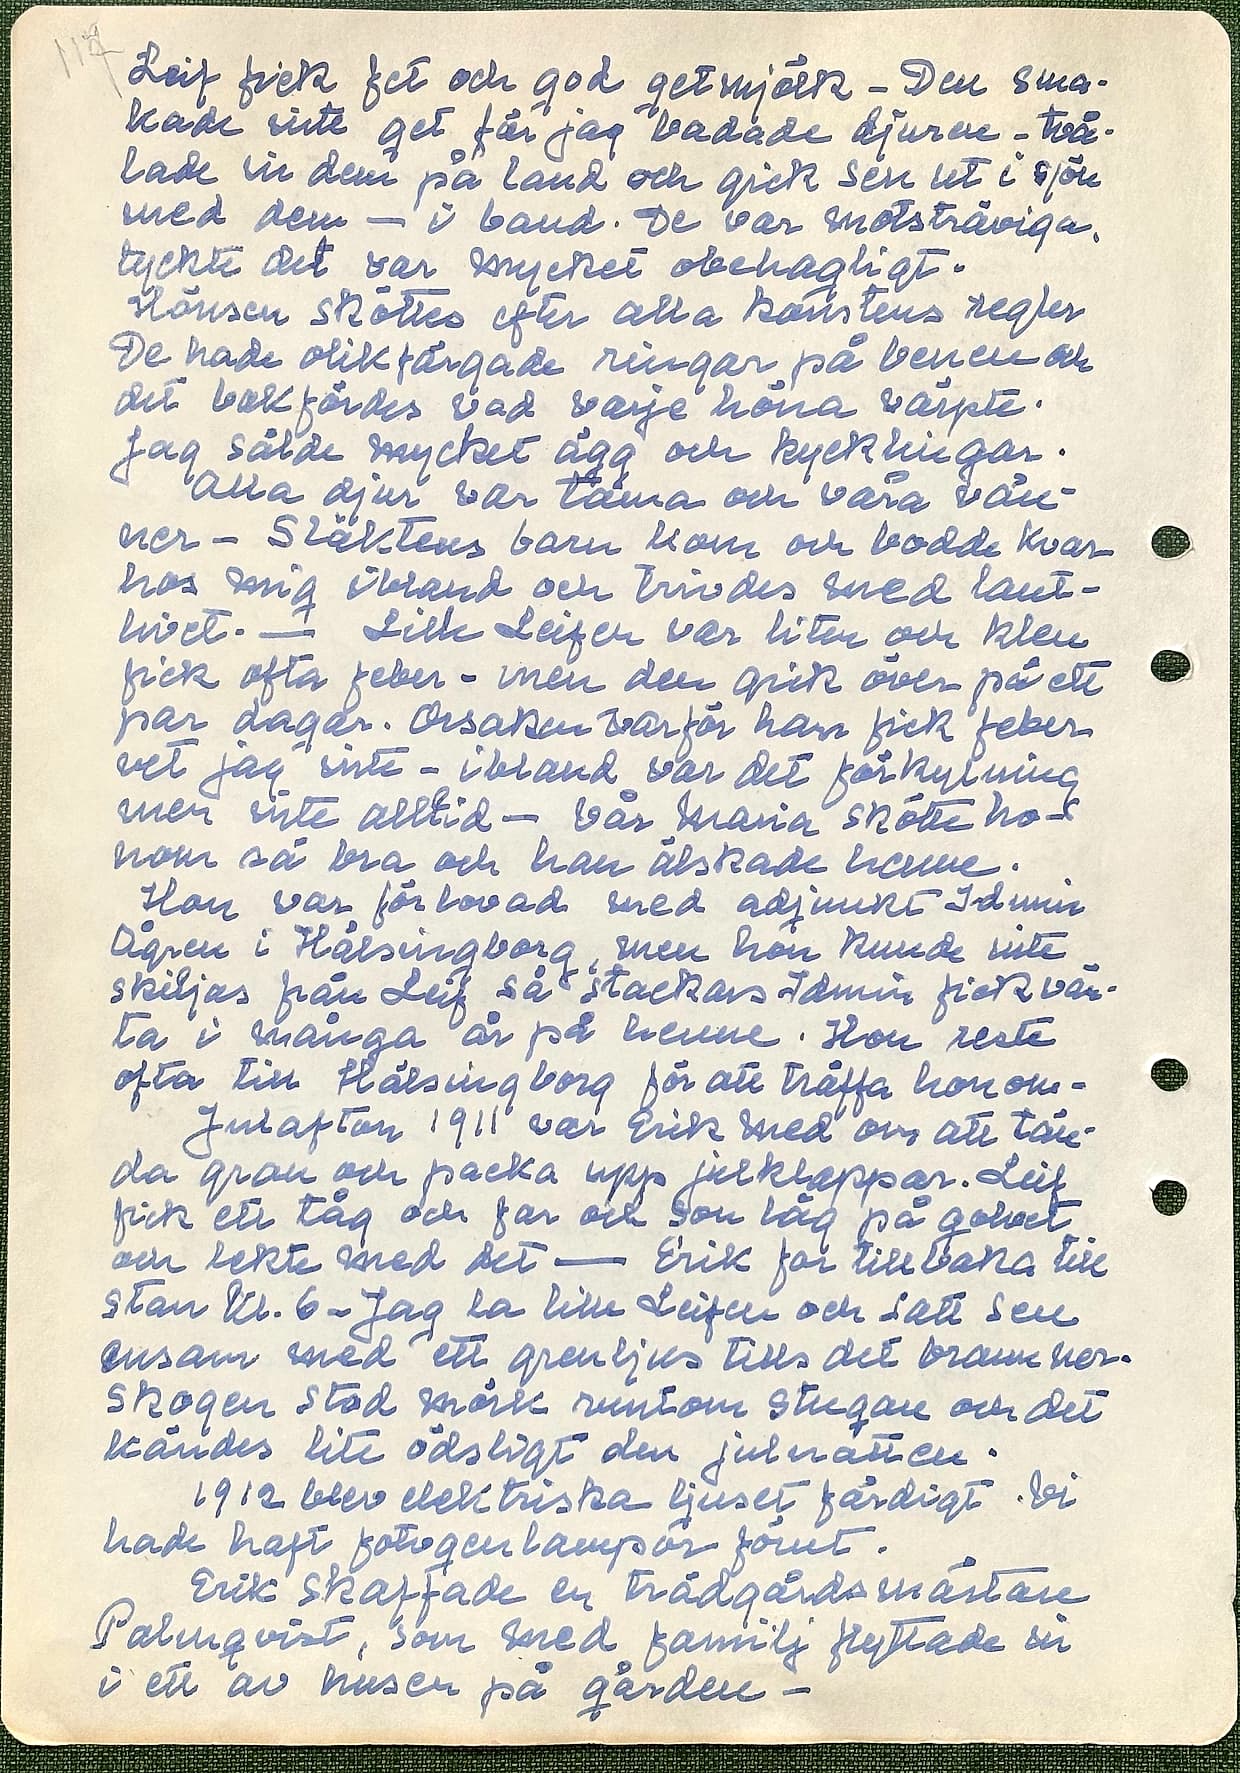 117
Leif fick fet och god getmjölk – Den sma-
kade inte get för jag badade djuren – två-
lade in dem på land och gick sen ut i sjön
med dem — i band. De var motsträviga,
tyckte det var mycket obehagligt.
Hönsen sköttes efter alla konstens regler
De hade olikfärgade ringar på benen och
det bokfördes vad varje höna värpte.
Jag sålde mycket ägg och kycklingar.
Alla djur var tama och våra vän-
ner – Släktens barn kom och bodde kvar
hos mig ibland och trivdes med lant-
livet. — Lille Leifen var liten och klen
fick ofta feber – men den gick över på ett
par dagar. Orsaken varför han fick feber
vet jag inte – ibland var det förkylning
men inte alltid – Vår Maria skötte ho-
nom så bra och han älskade henne.
Hon var förlovad med adjunkt Idmin
Ågren i Hälsingborg, men hon kunde inte
skiljas från Leif så stackars Idmin fick vän-
ta i många år på henne. Hon reste
ofta till Hälsingborg för att träffa honom –
Julafton 1911 var Erik med om att tän-
da gran och packa upp julklappar. Leif
fick ett tåg och far och son låg på golvet
och lekte med det — Erik for tillbaka till
stan Kl. 6 – Jag la lille Leifen och satt sen
ensam med ett grenljus tills det brann ner.
Skogen stod mörk runtom stugan och det
kändes lite ödsligt den julnatten.
1912 blev elektriska ljuset färdigt. Vi
hade haft fotogenlampor förut.
Erik skaffade en trädgårdsmästare
Palmqvist, som med familj flyttade in
i ett av husen på gården –